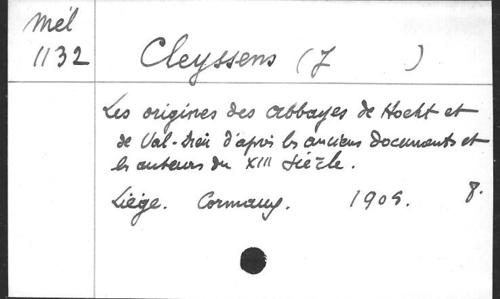 Mél
1132
Cleyssens (J )
Les origines des abbayes de Hocht et
de Val-Dieu d'après les anciens documents et
les auteurs du XIII siècle.
Liège. Cormaux. 1905. 8.